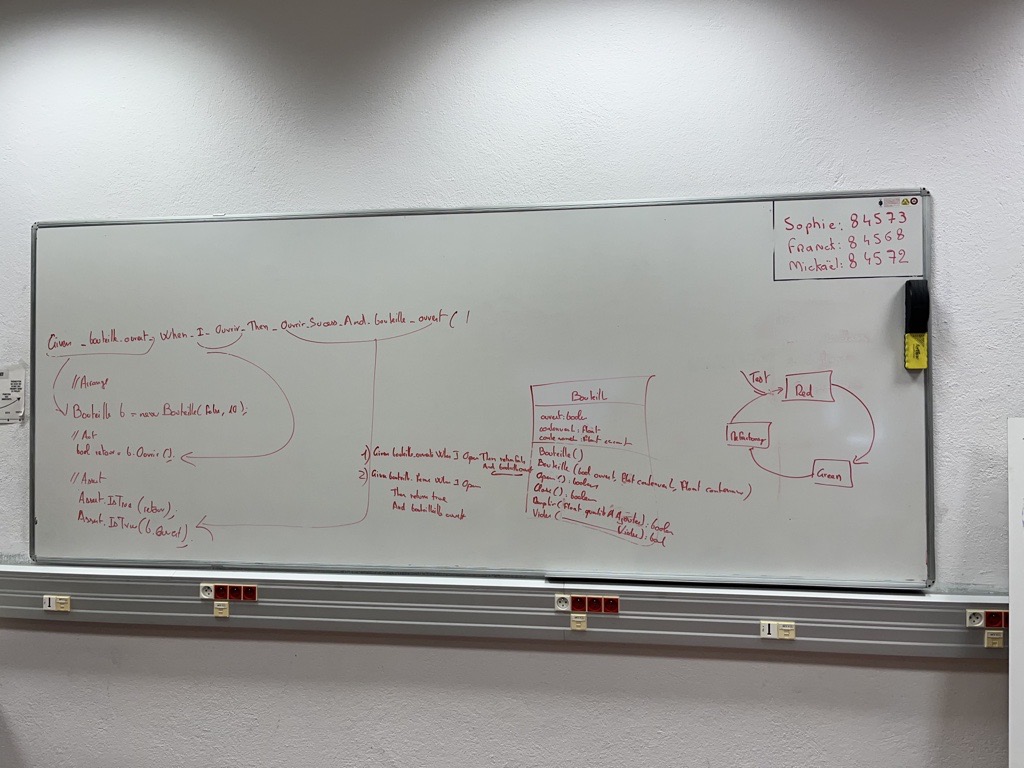 Sophie: 84573
Franck: 84568
Mickaël: 84572
Given_bouteille_ouvert_When_I_Ouvrir_Then_Ouvrir_Success_And_bouteille_ouvert(
// Arrange
Bouteille b = new Bouteille(false, 10);
// Act
bool retour = b.Ouvrir();
// Assert
Assert.IsTrue(retour);
Assert.IsTrue(b.Ouvert)
1) Given bouteille ouverte When I Open Then return false
And bouteille ouvert
2) Given bouteille ferme When I Open
Then return true
And bouteille ouvert
Bouteille
ouvert: boolean
contenant: float
float
Bouteille()
Bouteille(bool ouvert, float contenant, float contenu)
Open(): boolean
Close(): boolean
Remplir(float quantité A Ajouter): boolean
Vider(
Vider): bool
Test
Red
Green
Refactoring
1
1